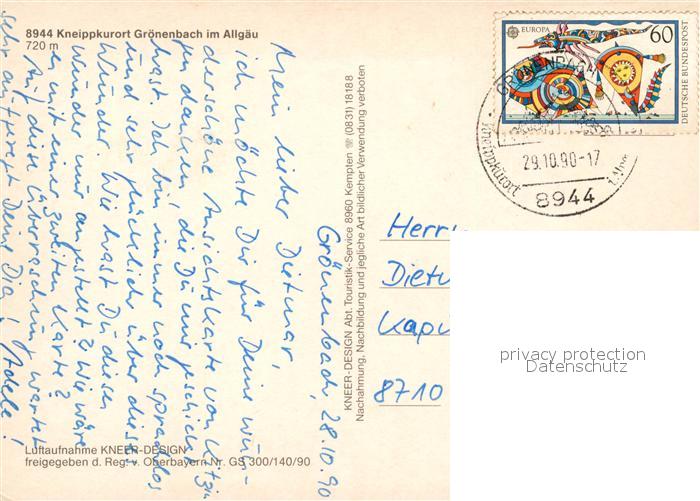 8944 Kneippkurort Grönenbach im Allgäu
720 m
Grönenbach, 28.10.90
Mein lieber Dietmar,
ich möchte Dir für Deine wun-
derschöne Ansichtskarte von Kitzin
zu danken, die Du mir geschickt
hast. Ich bin immer noch sprachlos
und sehr glücklich über dieses
Wunder. Wie hast Du dieses
Wunder nur angestellt? Wie wäre
es mit einer zweiten Karte?
Auf diese Überraschung wartet
sehr aufgeregt Deine Dia Adele!
Luftaufnahme KNEER-DESIGN
freigegeben d. Reg. v. Oberbayern Nr. GS 300/140/90
KNEER-DESIGN Abt. Touristik-Service 8960 Kempten ☏ (0831) 18188
Nachahmung, Nachbildung und jegliche Art bildlicher Verwendung verboten
EUROPA
60
DEUTSCHE BUNDESPOST
GRÖNENBACH
29.10.90-17
Kneippkurort
8944
Herrn
Dietm
Kapu
8710
privacy protection
Datenschutz